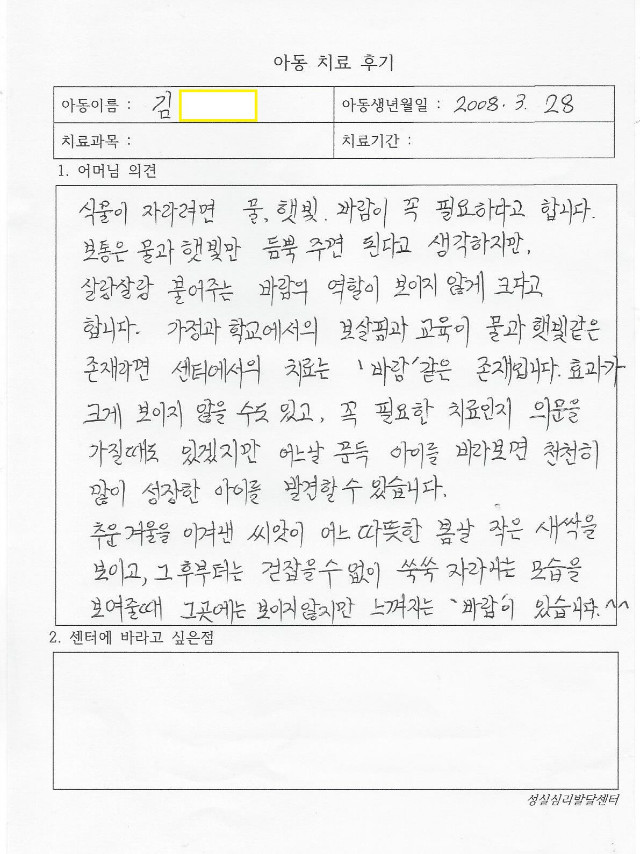 아동 치료 후기
아동이름 : 김
아동생년월일 : 2008. 3. 28
치료과목 :
치료기간 :
1. 어머님 의견
식물이 자라려면 물, 햇빛. 바람이 꼭 필요하다고 합니다.
보통은 물과 햇빛만 듬뿍 주면 된다고 생각하지만,
살랑살랑 불어주는 바람의 역할이 보이지 않게 크다고
합니다. 가정과 학교에서의 보살핌과 교육이 물과 햇빛같은
존재라면 센터에서의 치료는 '바람'같은 존재입니다. 효과가
크게 보이지 않을 수도 있고, 꼭 필요한 치료인지 의문을
가질때도 있겠지만 어느날 문득 아이를 바라보면 천천히
많이 성장한 아이를 발견할 수 있습니다.
추운 겨울을 이겨낸 씨앗이 어느 따뜻한 봄날 작은 새싹을
보이고, 그 후부터는 걷잡을 수 없이 쑥쑥 자라나는 모습을
보여줄때 그곳에는 보이지않지만 느껴지는 '바람'이 있습니다.^^
2. 센터에 바라고 싶은점
성실심리발달센터